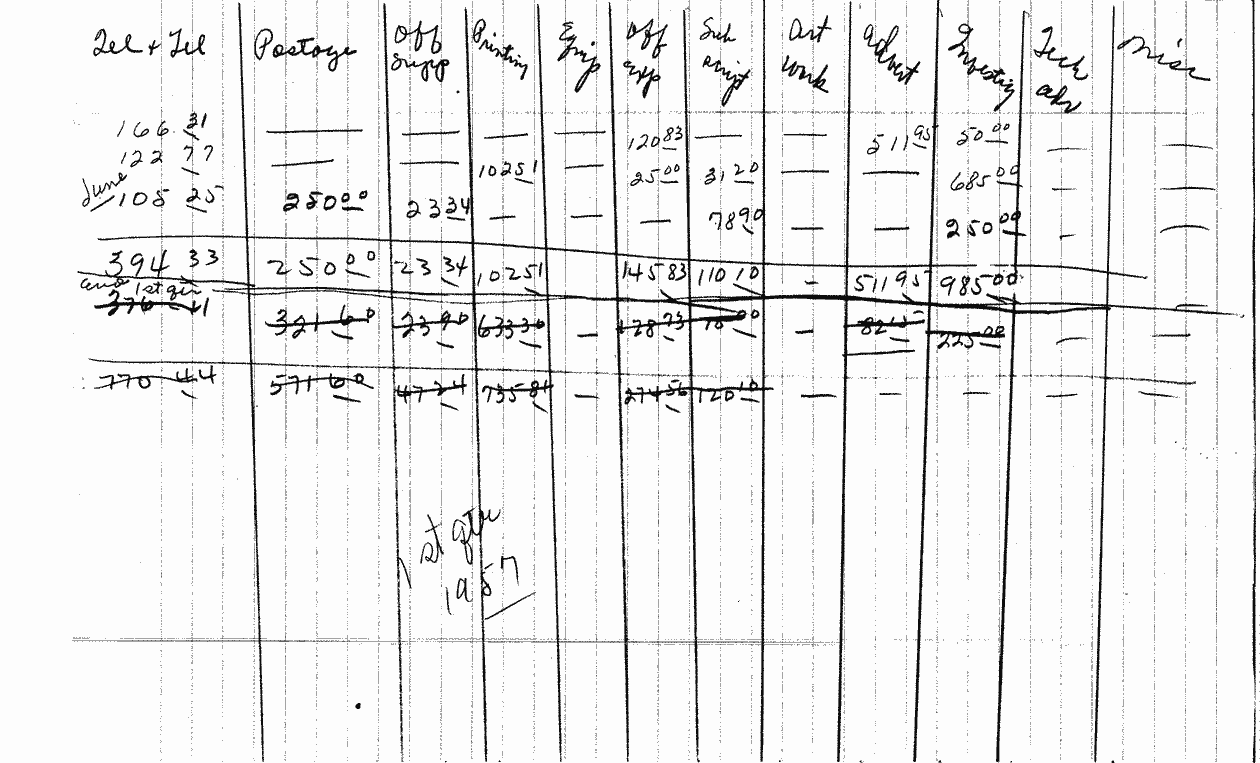 Tel + Tel Postage Off Supp Printing Equip Off Exp Sub script Art Work Advert Investig Tech adv Misc
166 31 — — — — 120 83 — — 511 95 50 00 — —
122 77 — — 102 51 — 25 00 31 20 — — 685 00 — —
June 105 25 250 00 23 34 — — — 78 90 — — 250 00 — —
394 33 250 00 23 34 102 51 145 83 110 10 - 511 95 985 00 —
1st qtr
376 11 321 60 23 90 633 30 — 128 73 10 00 — 82 225 00 — —
770 44 571 60 47 24 735 81 — 274 56 120 10 — — — — —
1st qtr
1957